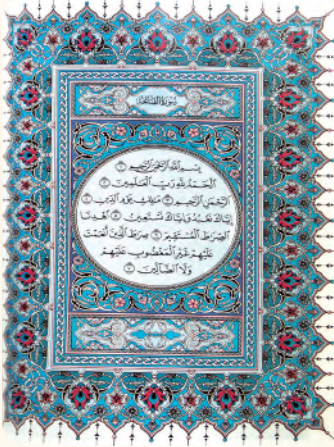 سورة الفاتحة
بسم الله الرحمن الرحيم ١
الحمد لله رب العالمين ٢
الرحمن الرحيم ٣ مالك يوم الدين ٤
إياك نعبد وإياك نستعين ٥ اهدنا
الصراط المستقيم ٦ صراط الذين أنعمت
عليهم غير المغضوب عليهم
ولا الضالين ٧